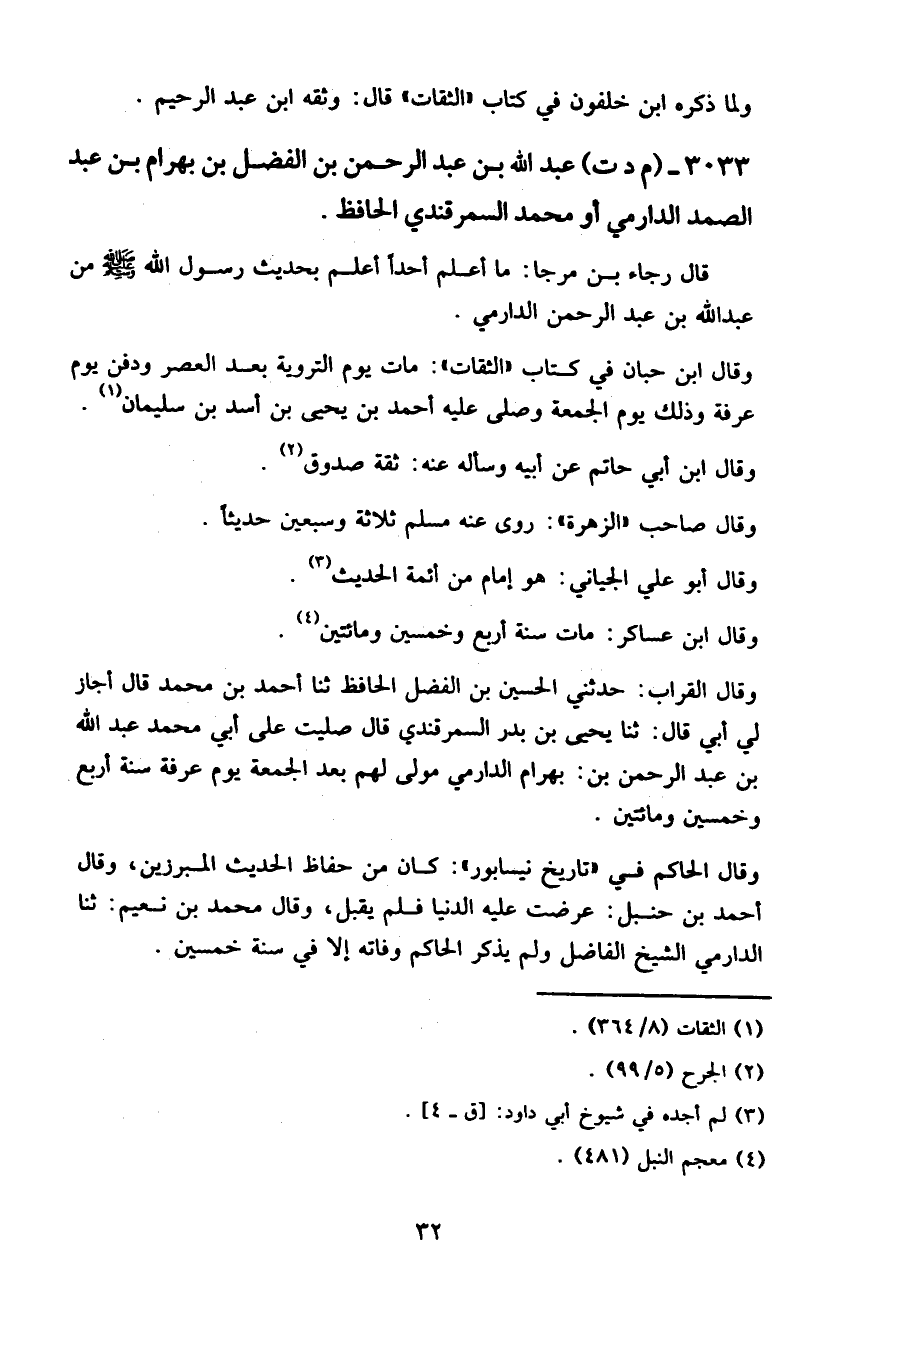 ولما ذكره ابن خلفون في كتاب «الثقات» قال: وثقه ابن عبد الرحيم .
٣٠٣٣ ـ (م د ت) عبد الله بـن عبد الرحـمن بن الفضـل بن بهرام بـن عبد
الصمد الدارمي أو محمد السمرقندي الحافظ .
قال رجاء بـن مرجا: ما أعـلم أحداً أعلـم بحديث رسـول الله ﷺ من
عبدالله بن عبد الرحمن الدارمي .
وقال ابن حبان في كـتاب «الثقات»: مات يوم التروية بعـد العصر ودفن يوم
عرفة وذلك يوم الجمعة وصلى عليه أحمد بن يحيى بن أسد بن سليمان(١) .
وقال ابن أبي حاتم عن أبيه وسأله عنه: ثقة صدوق(٢) .
وقال صاحب «الزهرة»: روى عنه مسلم ثلاثة وسبعين حديثاً .
وقال أبو علي الجياني: هو إمام من أئمة الحديث(٣) .
وقال ابن عساكر: مات سنة أربع وخمسين ومائتين(٤) .
وقال القراب: حدثني الحسين بن الفضل الحافظ ثنا أحمد بن محمد قال أجاز
لي أبي قال: ثنا يحيى بن بدر السمرقندي قال صليت على أبي محمد عبد الله
بن عبد الرحمن بن: بهرام الدارمي مولى لهم بعد الجمعة يوم عرفة سنة أربع
وخمسين ومائتين .
وقال الحاكم فـي «تاريخ نيسابور»: كـان من حفاظ الحديث المـبرزين، وقال
أحمد بن حنـبل: عرضت عليه الدنيا فـلم يقبل، وقال محمد بن نـعيم: ثنا
الدارمي الشيخ الفاضل ولم يذكر الحاكم وفاته إلا في سنة خمسين .
(١) الثقات (٨/ ٣٦٤) .
(٢) الجرح (٥/ ٩٩) .
(٣) لم أجده في شيوخ أبي داود: [ق ـ ٤] .
(٤) معجم النبل (٤٨١) .
٣٢